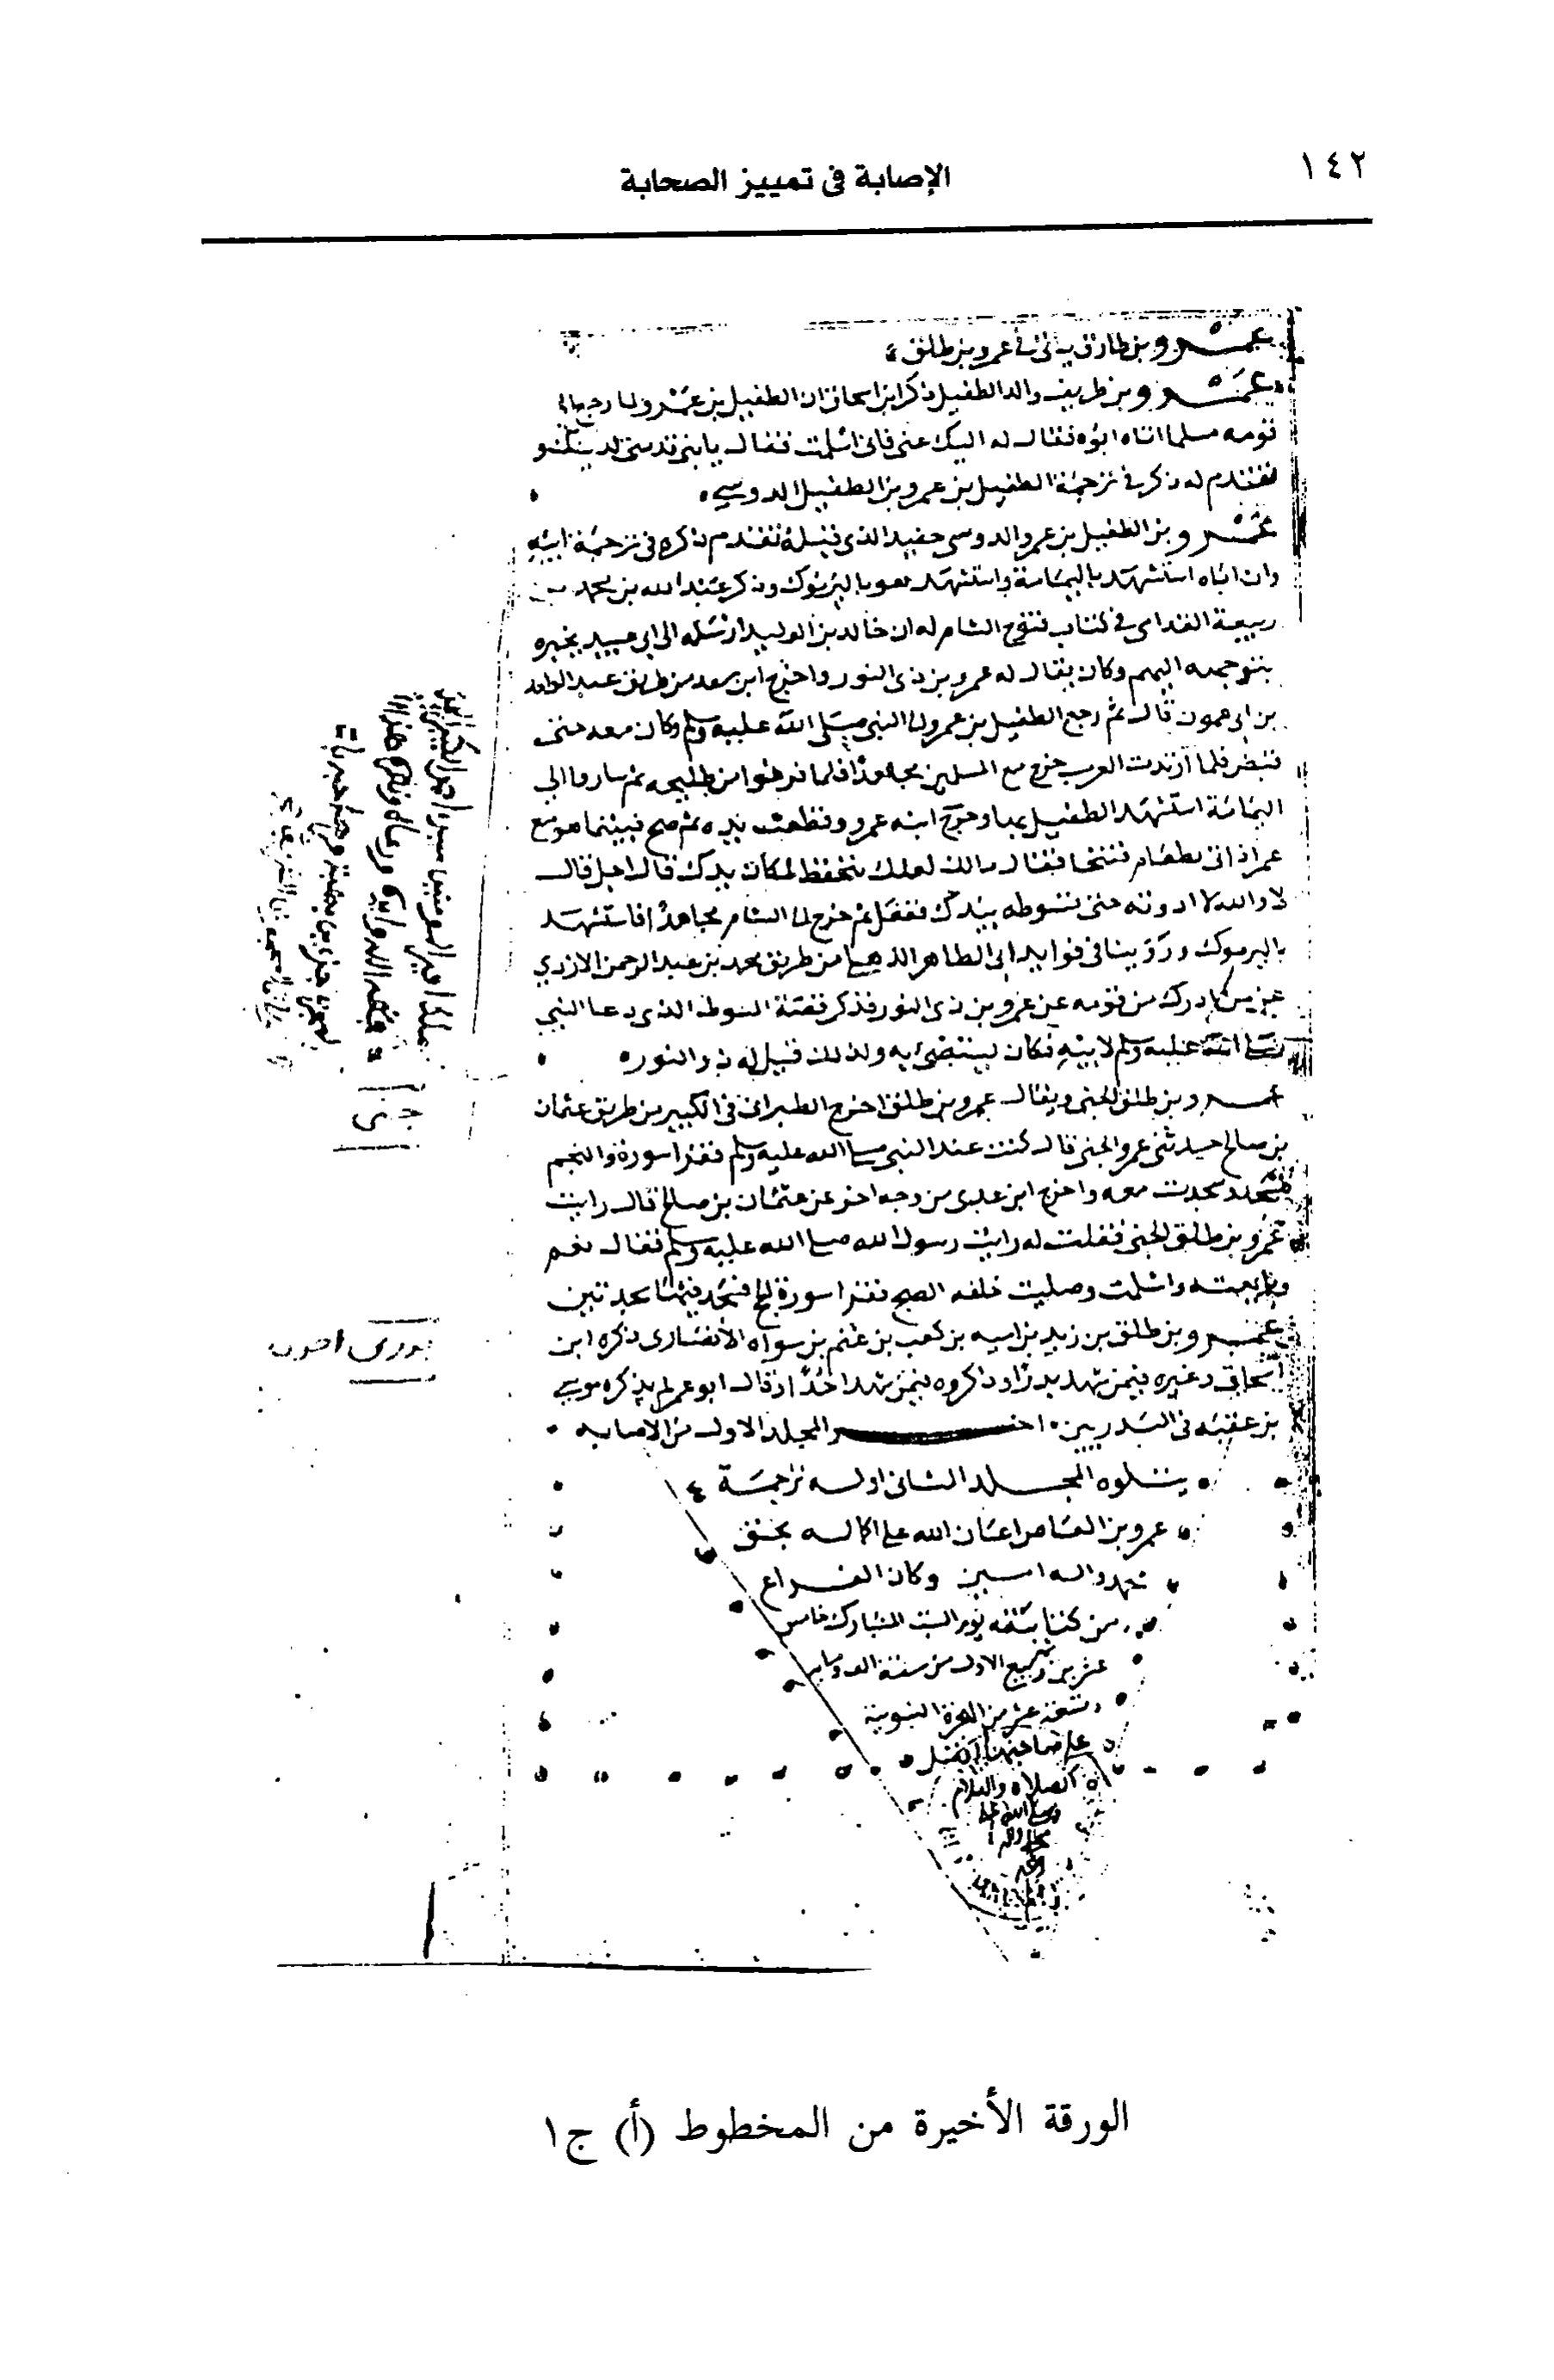 ١٤٢
الإصابة في تمييز الصحابة
عمرو بن طارق يأتي في عمرو بن طلق
عمرو بن طريف والد الطفيل ذكر ابن اسحاق ان الطفيل بن عمرو لما رجع الى
قومه مسلما اتاه ابوه فقال له اليك عني فاني اسلمت فقال يا بني فديني لدينك
فتقدم له ذكر في ترجمة الطفيل بن عمرو بن الطفيل الدوسي
عمرو بن الطفيل بن عمرو الدوسي حفيد الذي قبله تقدم ذكره في ترجمة ابيه
وان اباه استشهد باليمامة واستشهد هو باليرموك وذكر عبد الله بن محمد بن
ربيعة القدامي في كتاب فتوح الشام له ان خالد بن الوليد ارسله الى ابي عبيد يخبره
بتوجهه اليهم وكان يقال له عمرو بن ذي النور واخرج ابن سعد من طريق عبد الواحد
بن ابي عون قال ثم رجع الطفيل بن عمرو الى النبي صلى الله عليه وسلم وكان معه حتى
قبض فلما ارتدت العرب خرج مع المسلمين مجاهدا فلما فرغوا من طليحه ثم ساروا الى
اليمامة استشهد الطفيل بها وجرح ابنه عمرو وقطعت يده ثم صح فبينما هو مع
عمر اذ اتى بطعام فتنحا فقال مالك لعلك تتحفظ لمكان يدك قال اجل قال
لا والله لا ادوقه حتى تسوطه بيدك ففعل ثم خرج الى الشام مجاهدا فاستشهد
باليرموك وروينا في فوايد ابي الطاهر الذهلي من طريق محمد بن عبد الرحمن الازدي
عن من ادرك من قومه عن عمرو بن ذي النور فذكر قصة السوط الذي دعا النبي
صلى الله عليه وسلم لابيه فكان يستضيء به ولذلك قيل له ذو النور
عمرو بن طلق الجني ويقال عمرو بن طلق اخرج الطبراني في الكبير من طريق عثمان
بن صالح حدثني عمرو الجني قال كنت عند النبي صلى الله عليه وسلم فقرا سورة والنجم
فسجد وسجدت معه واخرج ابن عدي من وجه اخر عن عثمان بن صالح قال رايت
عمرو بن طلق الجني فقلت له رايت رسول الله صلى الله عليه وسلم فقال نعم
وبايعته واسلمت وصليت خلفه الصبح فقرا سورة الحج فسجد فيها سجدتين
عمرو بن طلق بن زيد بن اميه بن كعب بن غنم بن سواد الأنصاري ذكره ابن
اسحاق وغيره فيمن شهد بدرا وذكروه فيمن شهد احدا وقال ابو عمر لم يذكره موسى
بن عقبه في البدريين اخر المجلد الاول من الاصابه
يتلوه المجلد الثاني اوله ترجمة
عمرو بن العاص اعان الله على اكماله بحق
محمد واله امين وكان الفراغ
من كتابته يوم السبت المبارك خامس
عشرين ربيع الاول من سنة الف وماية
وتسعة عشر من الهجرة النبوية
على صاحبها افضل
الصلاه والسلام
الورقة الأخيرة من المخطوط (أ) ج١